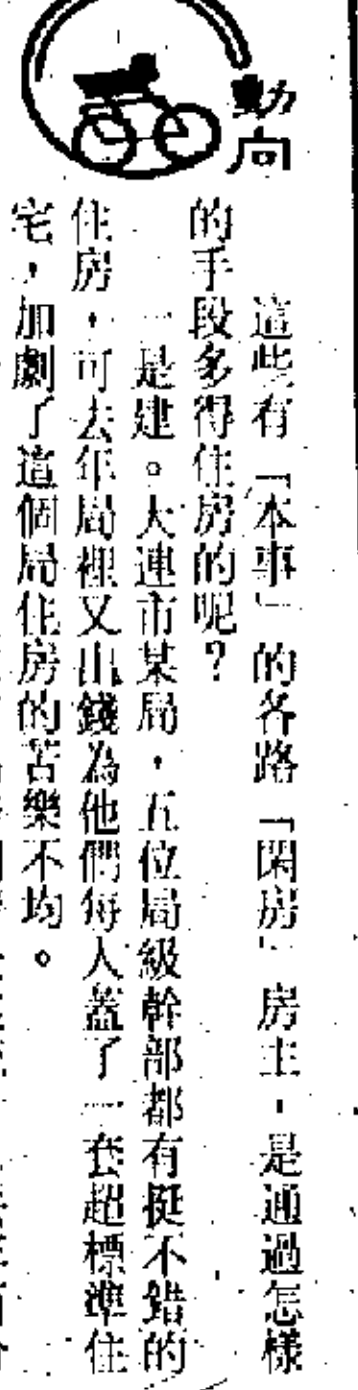 動向
這些有「本事」的各路「閑房」房主，是通過怎樣
的手段多得住房的呢？
一是建。大連市某局，五位局級幹部都有挺不錯的
住房，可去年局裡又出錢為他們每人蓋了一套超標準住
宅，加劇了這個局住房的苦樂不均。